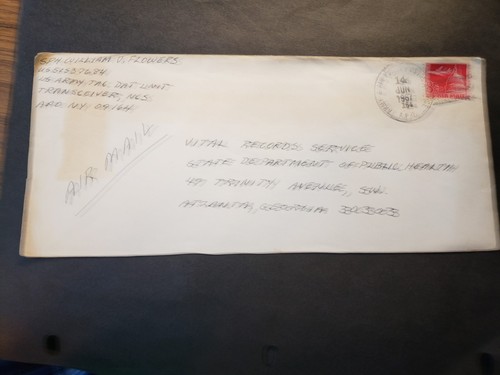 SP4. WILLIAM D. FLOWERS.
US ARMY TAC. DAT UNIT
TRANSCEIVER, NCS.
APO. NY. 09164.
AIR MAIL
VITAL RECORDS SERVICE
STATE DEPARTMENT OF PUBLIC HEALTH
47 TRINITY AVENUE,, S.W.
ATLANTA, GEORGIA
JUN
1967